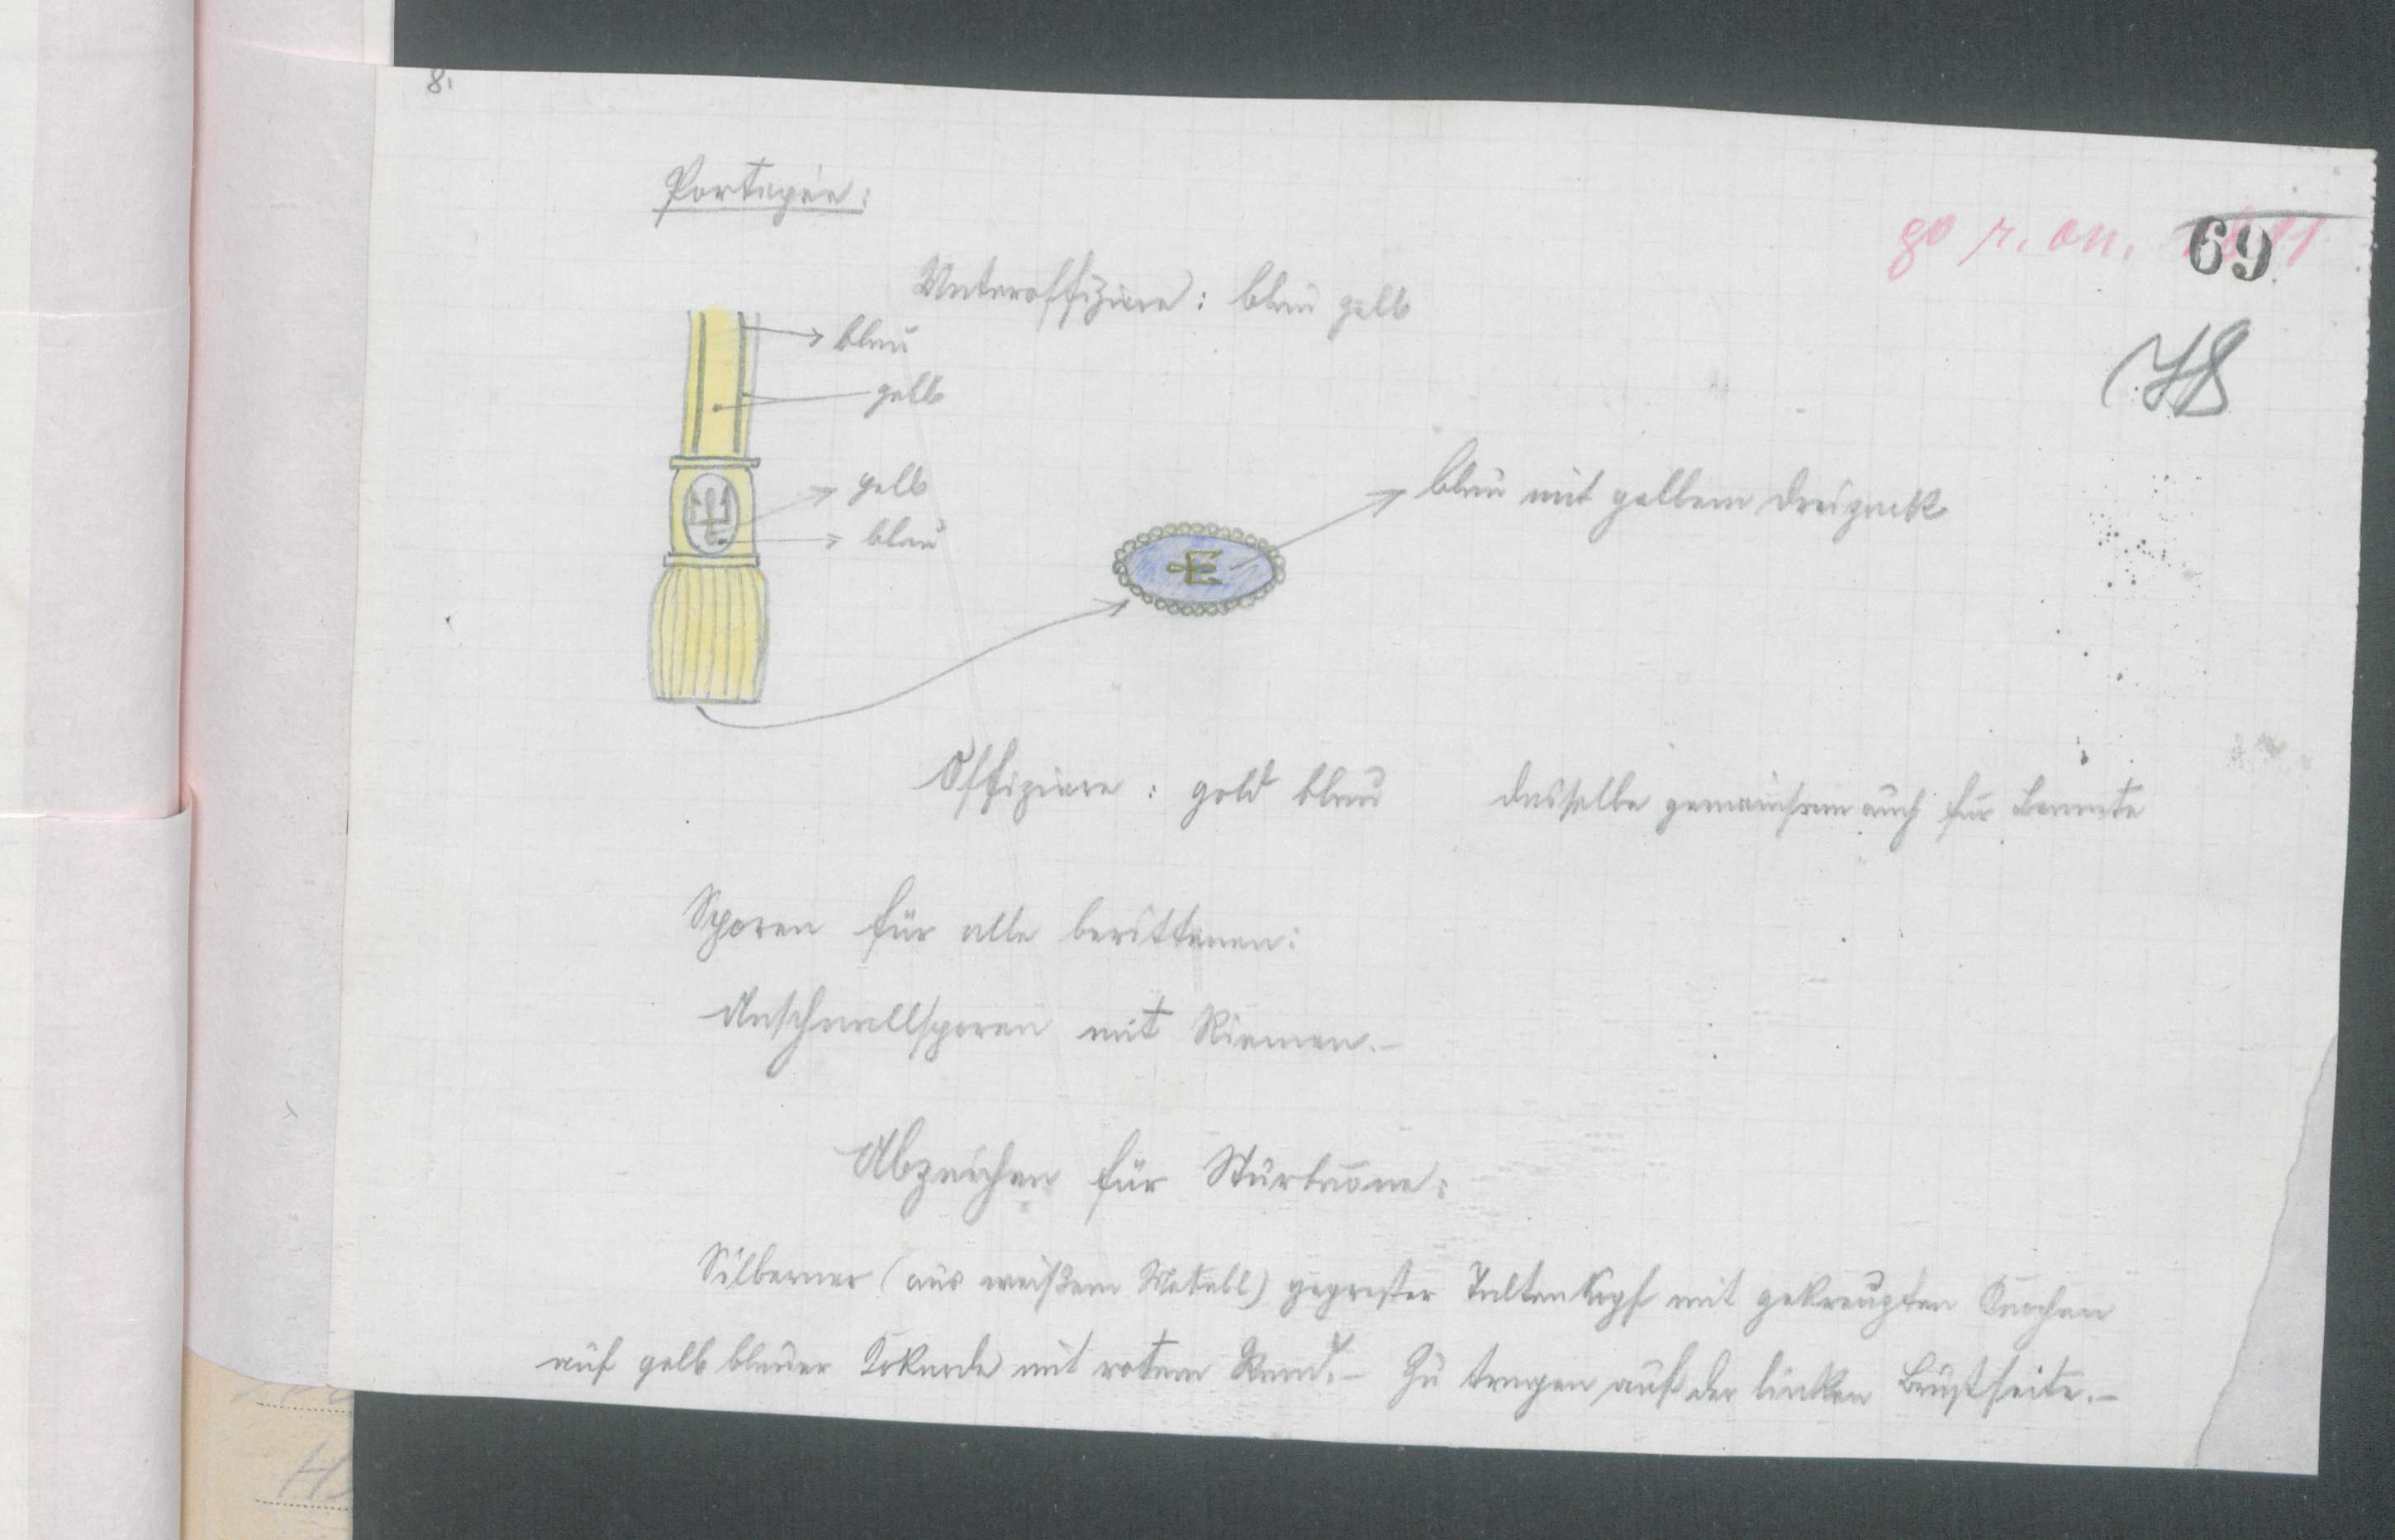 8.
Portepée:
69
Unteroffiziere: blau gelb
blau
gelb
gelb
blau
blau mit gelbem Dreizack
Offiziere: gold blau dasselbe gemeinsam auch für Beamte
Sporen für alle berittenen:
Anschnallsporen mit Riemen.-
Abzeichen für Sturbaone:
Silberner (aus weißem Metall) gepreßter Totenkopf mit gekreuzten Knochen
auf gelb blauer Kokarde mit rotem Rand.- Zu tragen auf der linken Brustseite.-